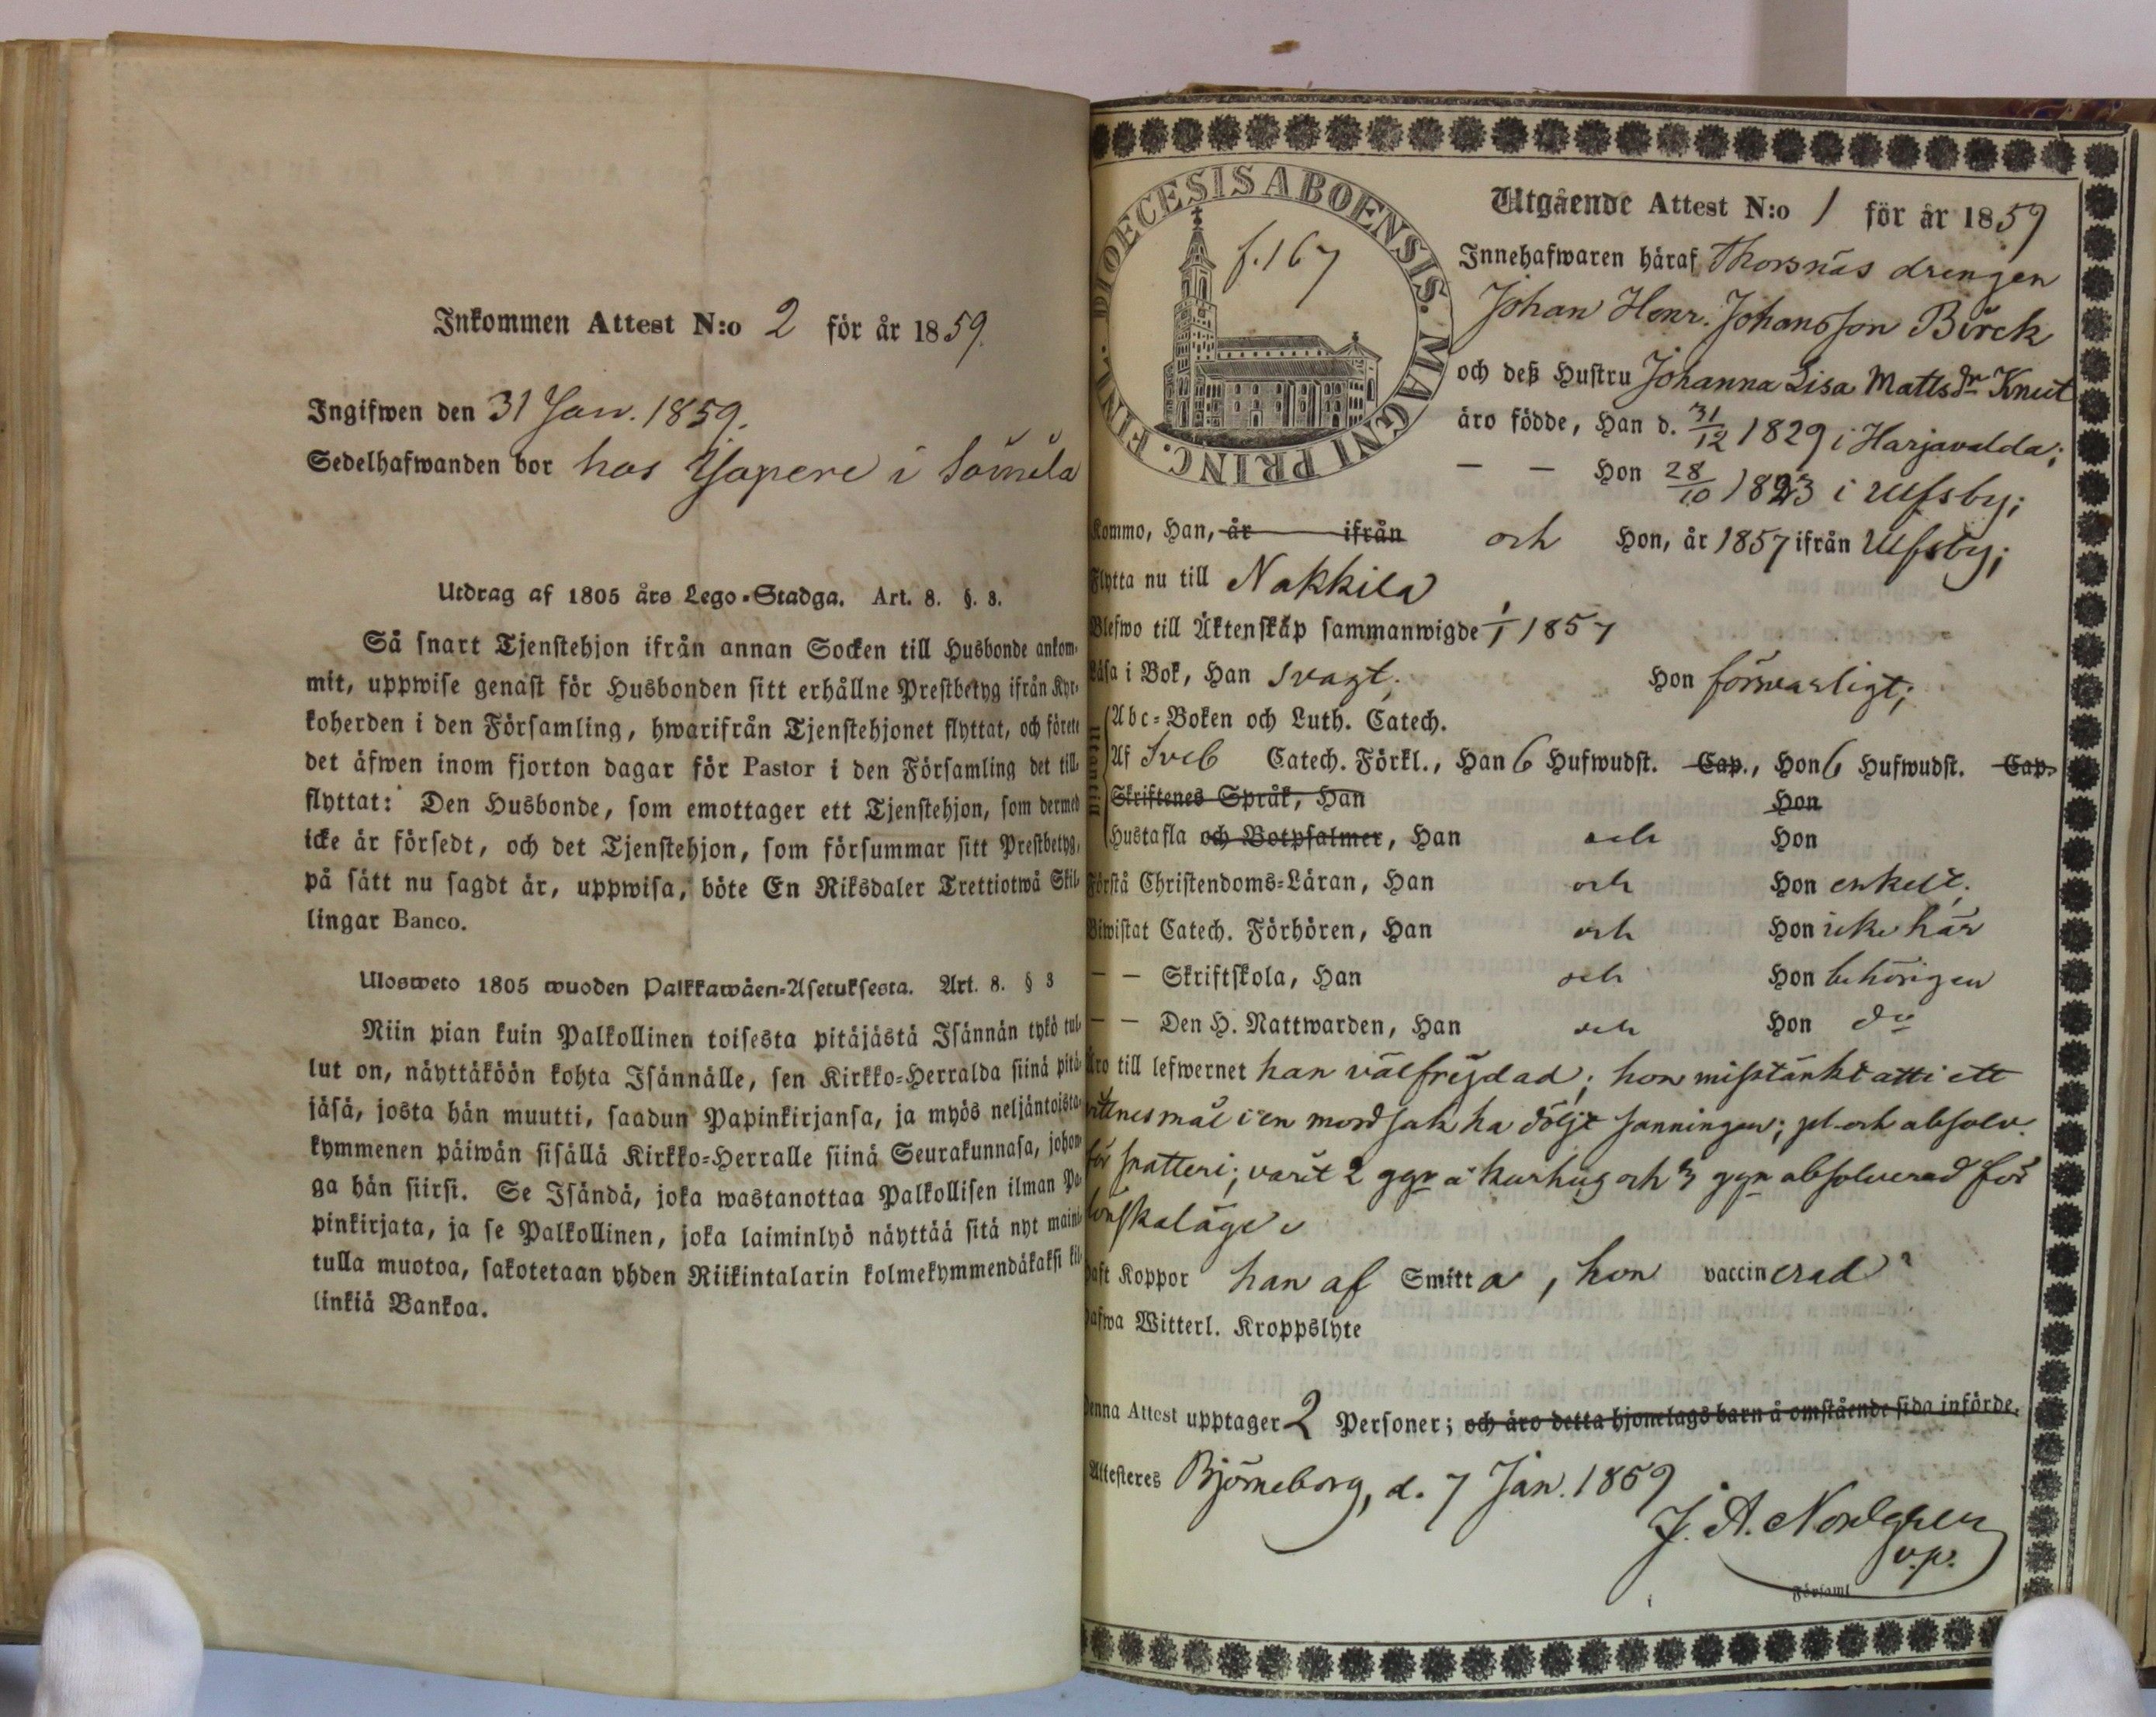 Inkommen Attest N:o 2 för år 1859.
Ingifwen den 31 Jan. 1859.
Sedelhafwanden bor hos Yjapere i Sömela
Utdrag af 1805 års Lego-Stadga. Art. 8. §. 3.
Så snart Tjenstehjon ifrån annan Socken till Husbonde ankom-
mit, uppwise genast för Husbonden sitt erhållne Prestbetyg ifrån Kyr-
koherden i den Församling, hwarifrån Tjenstehjonet flyttat, och förete
det äfwen inom fjorton dagar för Pastor i den Församling det till-
flyttat: Den Husbonde, som emottager ett Tjenstehjon, som dermed
icke är försedt, och det Tjenstehjon, som försummar sitt Prestbetyg,
på sätt nu sagdt är, uppwisa, böte En Riksdaler Trettiotwå Skil-
lingar Banco.
Ulosweto 1805 wuoden Palkkawäen-Asetuksesta. Art. 8. § 3
Niin pian kuin Palkollinen toisesta pitäjästä Isännän tykö tul-
lut on, näyttäköön kohta Isännälle, sen Kirkko-Herralda siinä pitä-
jäsä, josta hän muutti, saadun Papinkirjansa, ja myös neljäntoista-
kymmenen päiwän sisällä Kirkko-Herralle siinä Seurakunnasa, johon-
ga hän siirsi. Se Isändä, joka wastanottaa Palkollisen ilman Pa-
pinkirjata, ja se Palkollinen, joka laiminlyö näyttää sitä nyt maini-
tulla muotoa, sakotetaan yhden Riikintalarin kolmekymmendäkaksi kil-
linkiä Bankoa.
DIOECESIS ABOENSIS. MAGNI PRINC. FINL.
f. 167
Utgående Attest N:o 1 för år 1859
Innehafwaren häraf Thorsnäs drengen
Johan Henr. Johansson Birck
och deß Hustru Johanna Lisa Mattsdr Knut
äro födde, Han d. 31/12 1829 i Harjavalda;
— — Hon 28/10 1823 i Ulfsby;
Kommo, Han, år ifrån och Hon, år 1857 ifrån Ulfsby;
Flytta nu till Nakkila
Blefwo till Äktenskap sammanwigde 1/1 1857
Läsa i Bok, Han svagt. Hon försvarligt;
Utantill
Abc-Boken och Luth. Catech.
Af Sveb Catech. Förkl., Han 6 Hufwudst. Cap., Hon 6 Hufwudst. Cap.
Skriftenes Språk, Han Hon
Hustafla och Botpsalmer, Han och Hon
Förstå Christendoms-Läran, Han och Hon enkelt.
Biwistat Catech. Förhören, Han och Hon icke här
— — Skriftskola, Han och Hon behörigen
— — Den H. Nattwarden, Han och Hon do
Äro till lefwernet han välfrejdad; hon misstänkt att i ett
vittnesmål i en mordsak ha döljt sanningen; pl. och absolv.
för snatteri; varit 2 ggr å kurhus och 3 ggr absolverad för
lönskaläge.
Haft Koppor han af Smitta, hon vaccinerad
Hafwa Witterl. Kroppslyte
Denna Attest upptager 2 Personer; och äro detta hjonelags barn å omstående sida införde.
Attesteres Björneborg, d. 7 Jan. 1859
J. A. Nordgren
v.p.
i Församl